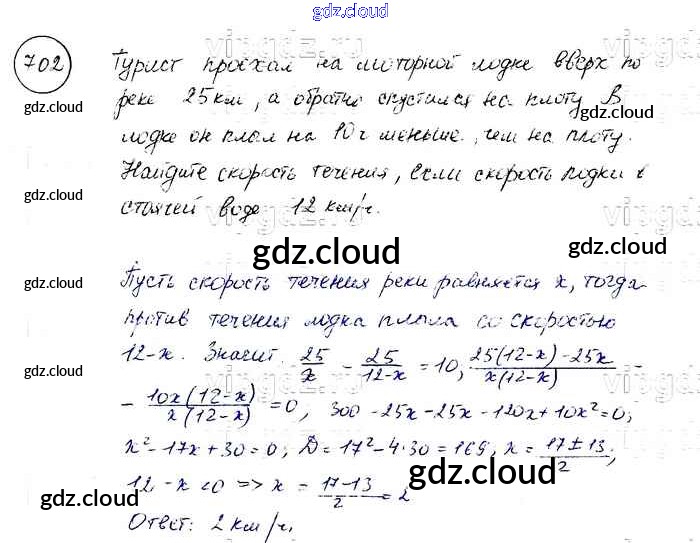 gdz.cloud
702 Турист проехал на моторной лодке вверх по
реке 25 км, а обратно спустился на плоту. В
gdz.cloud gdz.cloud
лодке он плыл на 10 ч меньше, чем на плоту.
gdz.cloud
Найдите скорость течения, если скорость лодки в
gdz.cloud
стоячей воде 12 км/ч.
gdz.cloud gdz.cloud
gdz.cloud Пусть скорость течения реки равняется x, тогда
против течения лодка плыла со скоростью
12-x. Значит. 25/x - 25/12-x = 10, 25(12-x)-25x/x(12-x) -
gdz.cloud
- 10x(12-x)/x(12-x) = 0, 300-25x-25x-120x+10x²=0,
x²-17x+30=0, D=17²-4·30=169, x=17±13/2;
12-x<0 => x = 17-13/2 = 2
gdz.cloud gdz.cloud
Ответ: 2 км/ч.
gdz.cloud